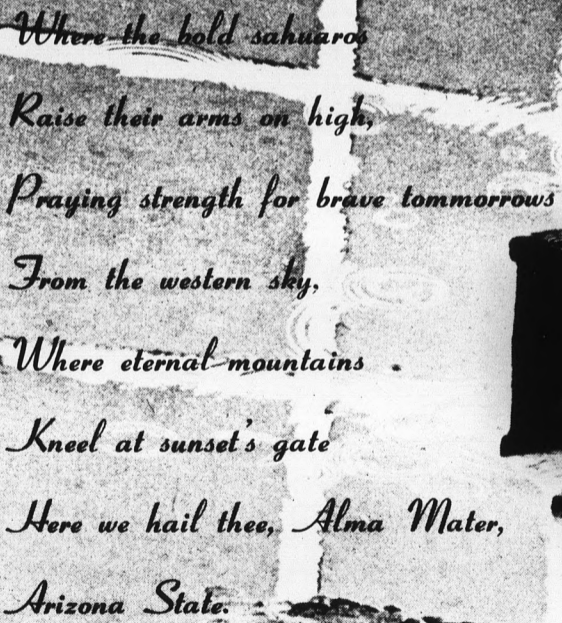 Where the bold sahuaros
Raise their arms on high,
Praying strength for brave tommorrows
From the western sky,
Where eternal mountains
Kneel at sunset's gate
Here we hail thee, Alma Mater,
Arizona State.